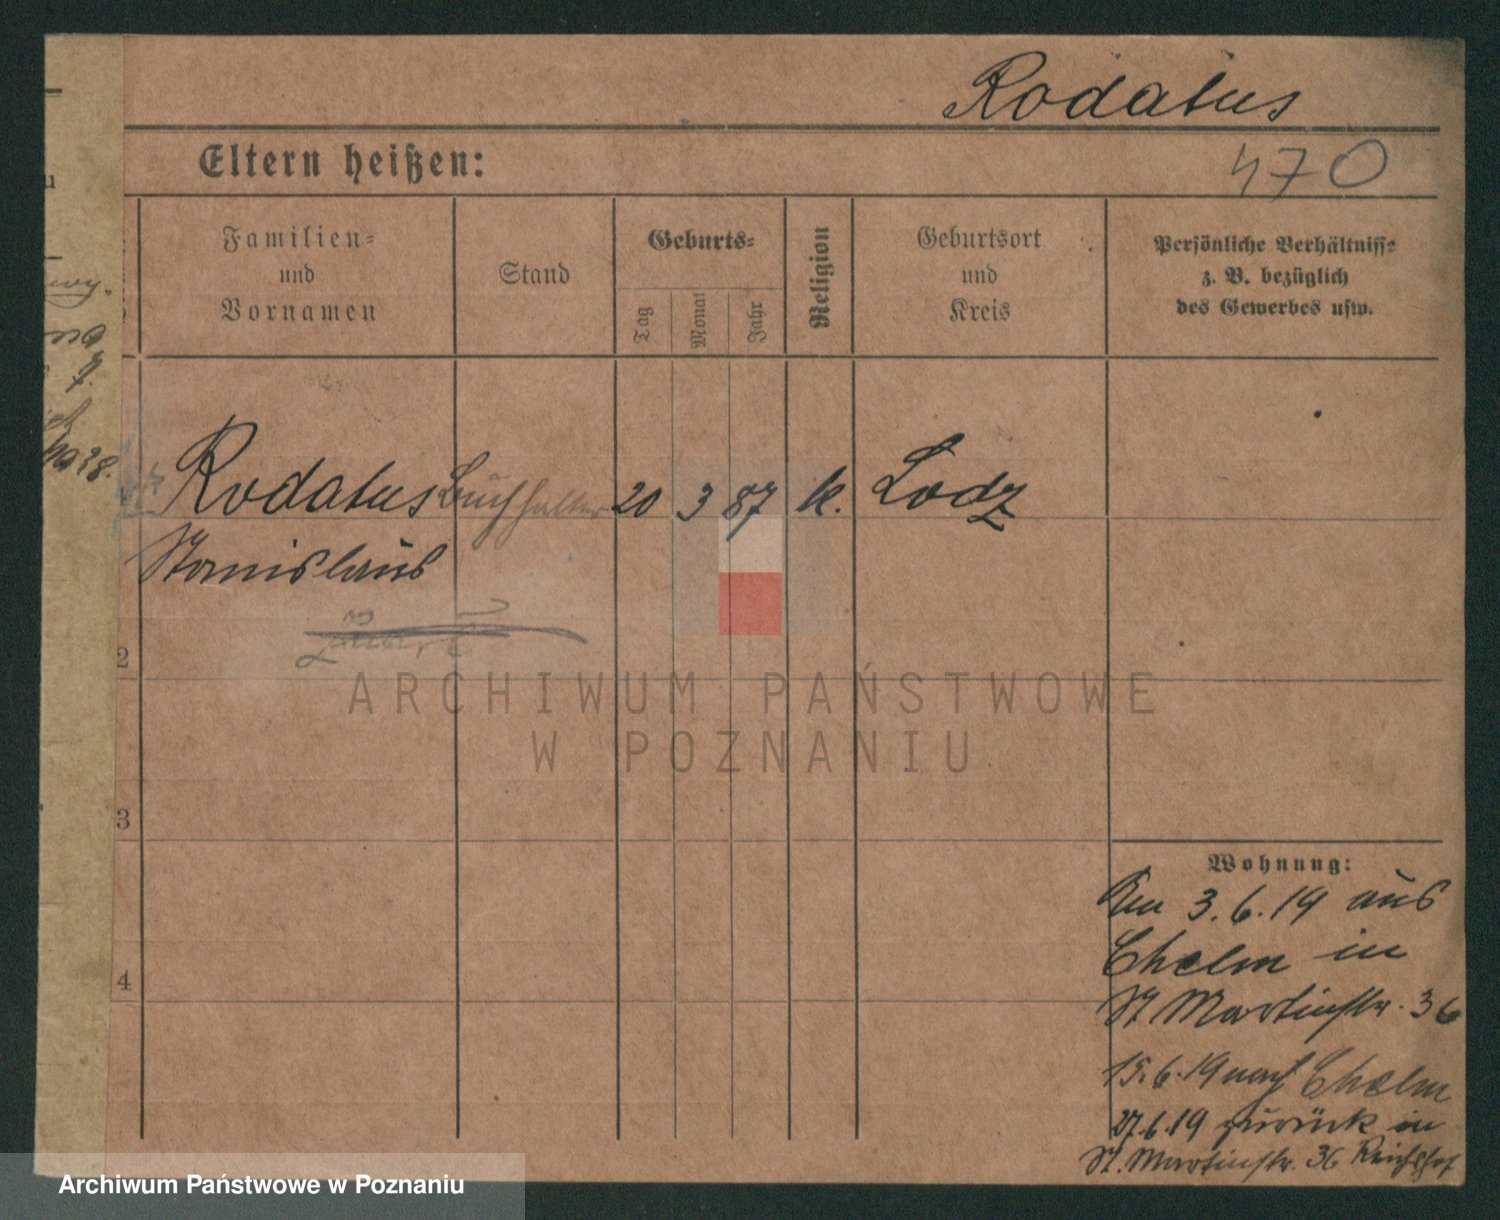 Rodatus
Eltern heißen:
470
Familien-
und
Vornamen
Stand
Geburts-
Tag
Monat
Jahr
Religion
Geburtsort
und
Kreis
Persönliche Verhältniss-
z. B. bezüglich
des Gewerbes usw.
Rodatus Buchhalter 20 3 87 k. Lodz
Stanislaus
2
ARCHIWUM PAŃSTWOWE
W POZNANIU
3
Wohnung:
3.6.19 aus
Chelm in
St Martinstr. 36
4
15.6.19 nach Chelm
27.6.19 zurück in
St. Martinstr. 36 Reichshof
Archiwum Państwowe w Poznaniu